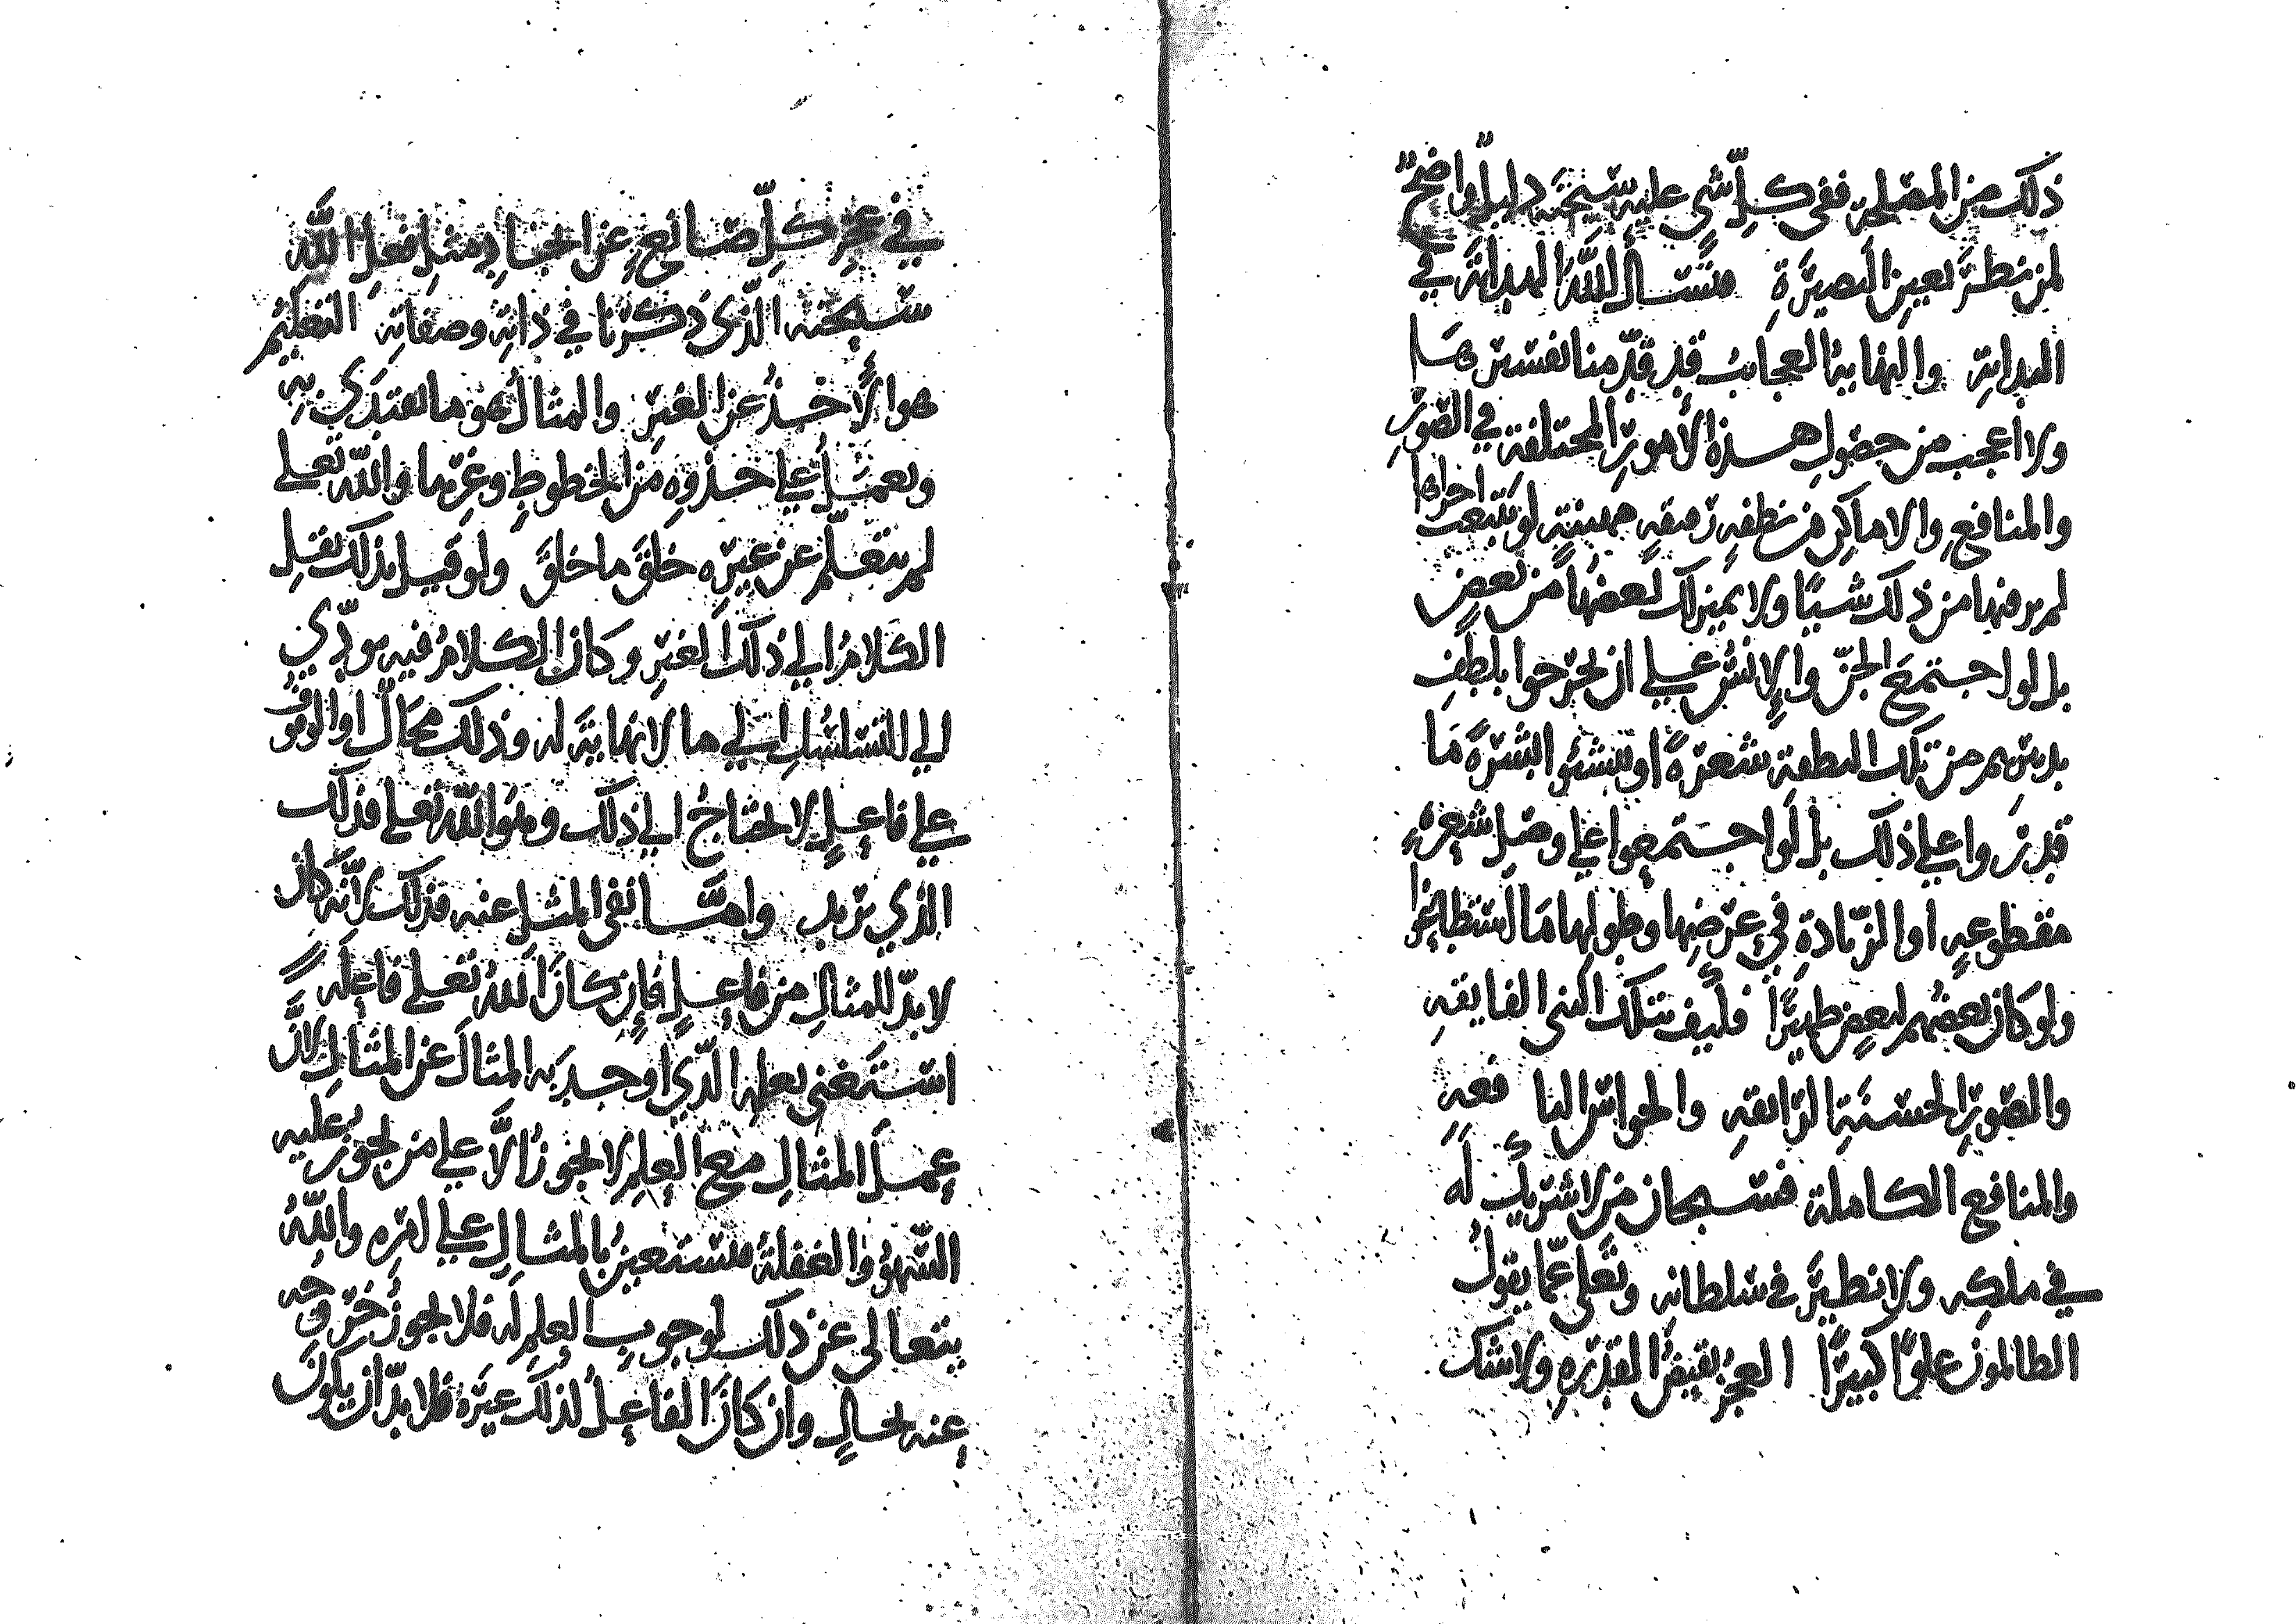 ذلك من المصلحة ففي كل شي عليه سبحنه دليل واضح
لمن نظر بعين البصيرة فنسأل الله الهداية في
البداية والنهاية العجايب قد قدمنا تفسيرها
ولا اعجب من حصول هذه الأمور المختلفة في الصور
والمنافع والاماكن من نطفه مهينة لو تتبعت اجزاها
لم ير فيها من ذلك شيئا ولا يميز لك بعضها من بعض
بل لو اجتمع الجن والإنس على ان يخرجوا بلطف
تدبيرهم من تلك النطفة شعرة او ينشئوا بشرة ما
قدروا على ذلك بل لو اجتمعوا على وصل شعره
مقطوعه او الزيادة في عرضها وطولها ما استطاعوا
ولو كان بعضهم لبعض ظهيرا فكيف بتلك البنى الفايقه
والصور الحسنة الرائقه والحواس النافعه
والمنافع الكاملة فسبحان من لا شريك له
في ملكه ولا نظير في سلطانه وتعلى عما يقول
الظالمون علوا كبيرا العجز نقيض القدره ولا شك
في عجز كل صانع عن ايجاد مثل فعل الله
سبحنه الذي ذكرنا في ذاته وصفاته التعليم
هو الأخذ عن الغير والمثال هو ما يقتدى به
ويعمل على حذوه من الخطوط وغيرها والله تعلى
لم يتعلم عن غيره خلق ما خلق ولو قيل بذلك نقل
الكلام الى ذلك الغير وكان الكلام فيه يودي
الى التسلسل الى ما لا نهاية له وذلك محال او الوقوف
على فاعل لا يحتاج الى ذلك وهو الله تعلى فذلك
الذي نريد واما نفي المثل عنه فذلك لأنه كان
لا بد للمثال من فاعل فإن كان الله تعلى فاعله
استغنى بعلمه الذي اوجد به المثال عن المثال لأن
عمل المثال مع العلم لا يجوز الا على من يجوز عليه
السهو والغفلة فيستعين بالمثال على امره والله
يتعالى عن ذلك لوجوب العلم له فلا يجوز خروجه
عنه بحال وان كان الفاعل لذلك غيره فلا بد ان يكون